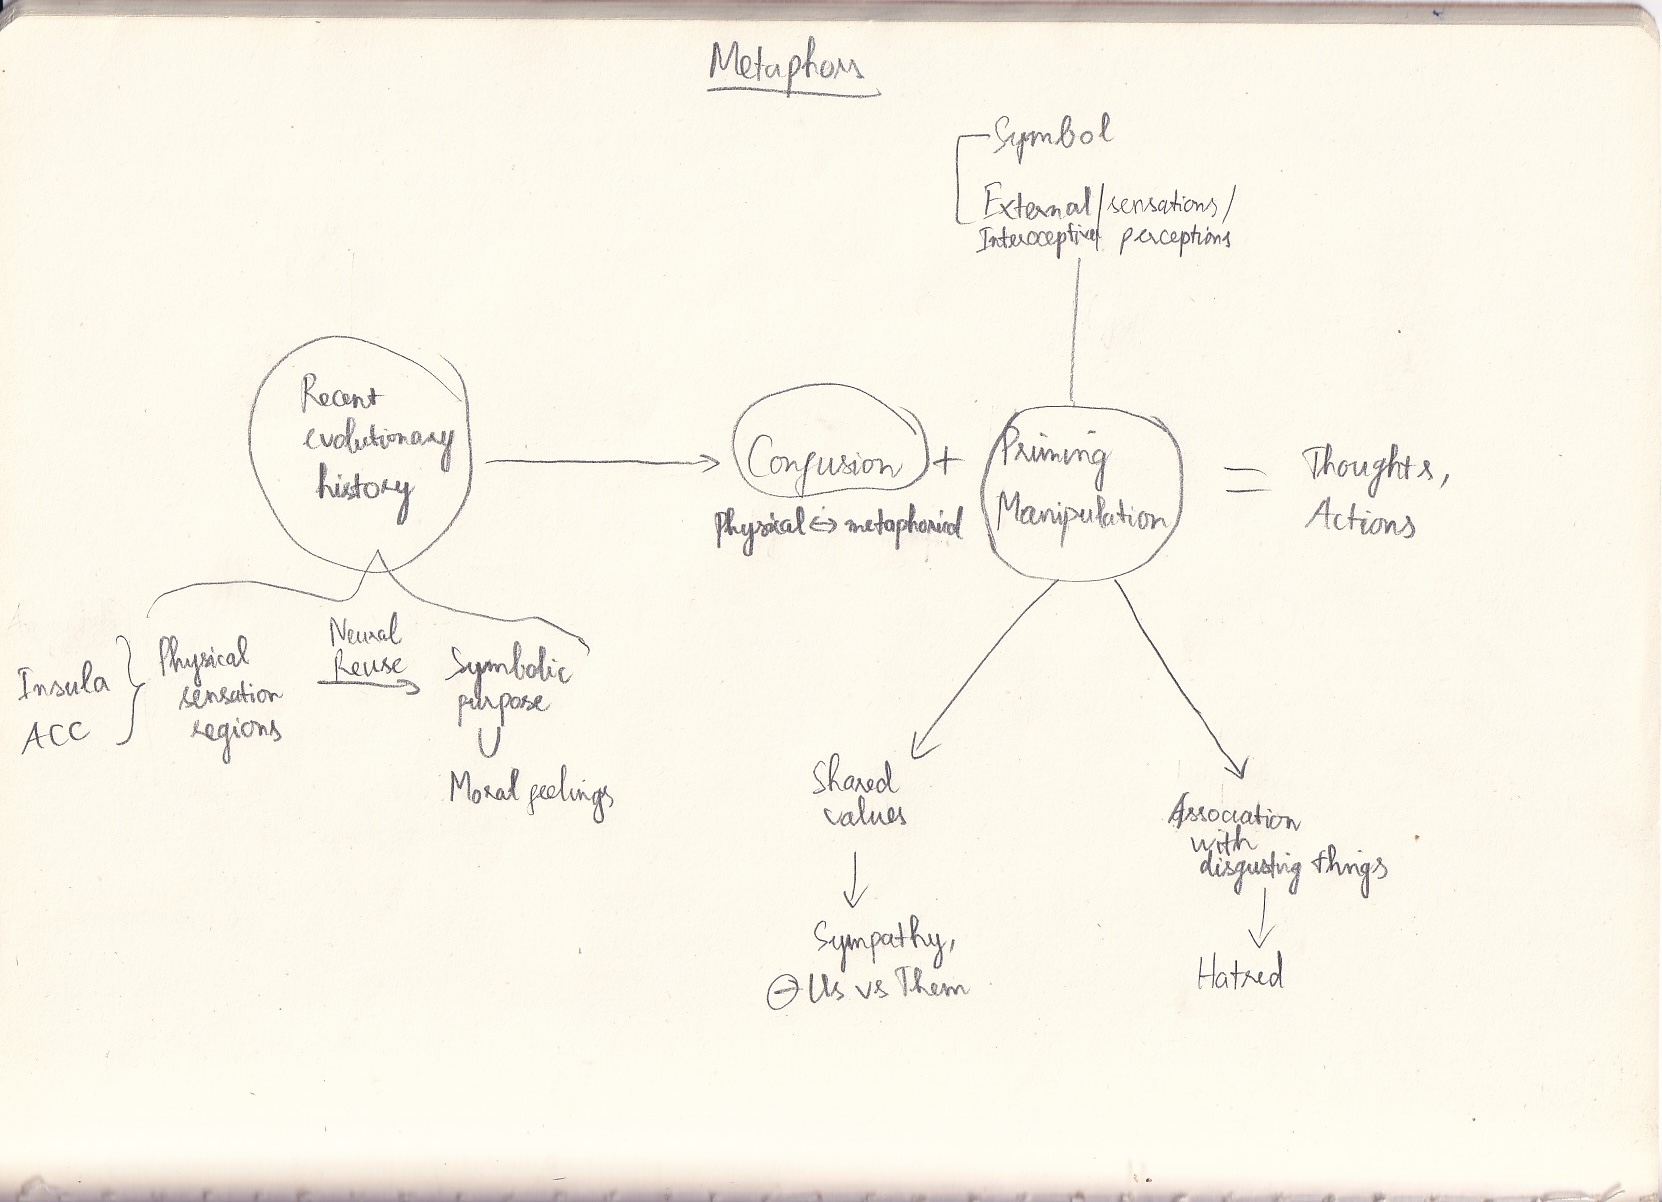 Metaphors
Symbol
External/sensations/
Interoceptive perceptions
Recent
evolutionary
history
Confusion +
Physical ⇔ metaphorical
Priming
Manipulation
= Thoughts,
Actions
Insula
ACC
Physical
sensation
regions
Neural
Reuse
Symbolic
purpose
U
Moral feelings
Shared
values
Sympathy,
⊖ Us vs Them
Association
with
disgusting things
Hatred